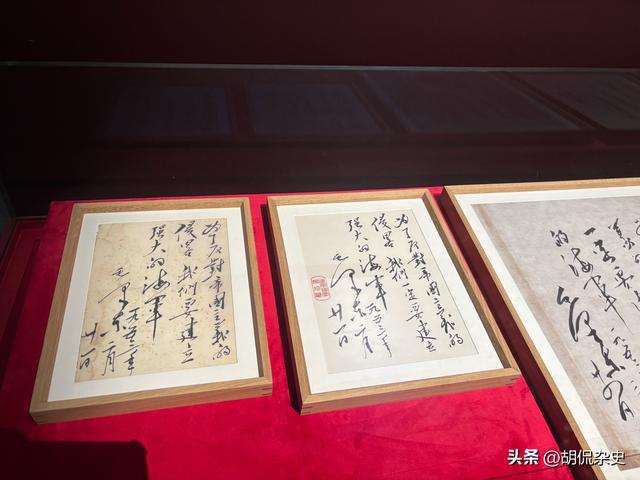 为了反對帝国主義的
侵畧我们要建立
强大的海軍
毛泽东
一九五三年
二月
廿一日
为了反對帝国主義的
侵畧我们一定要建立
强大的海軍
毛泽东
一九五三年
二月
廿一日
的海軍
毛泽东
一九五
头条 @胡侃杂史